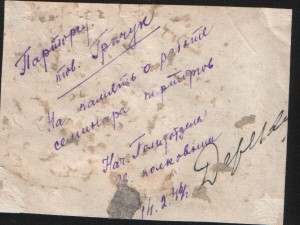 Парторгу
тов. Грачук
На память о работе
семинара парторгов
Нач. Политотдела
полковник
14.2.44г.